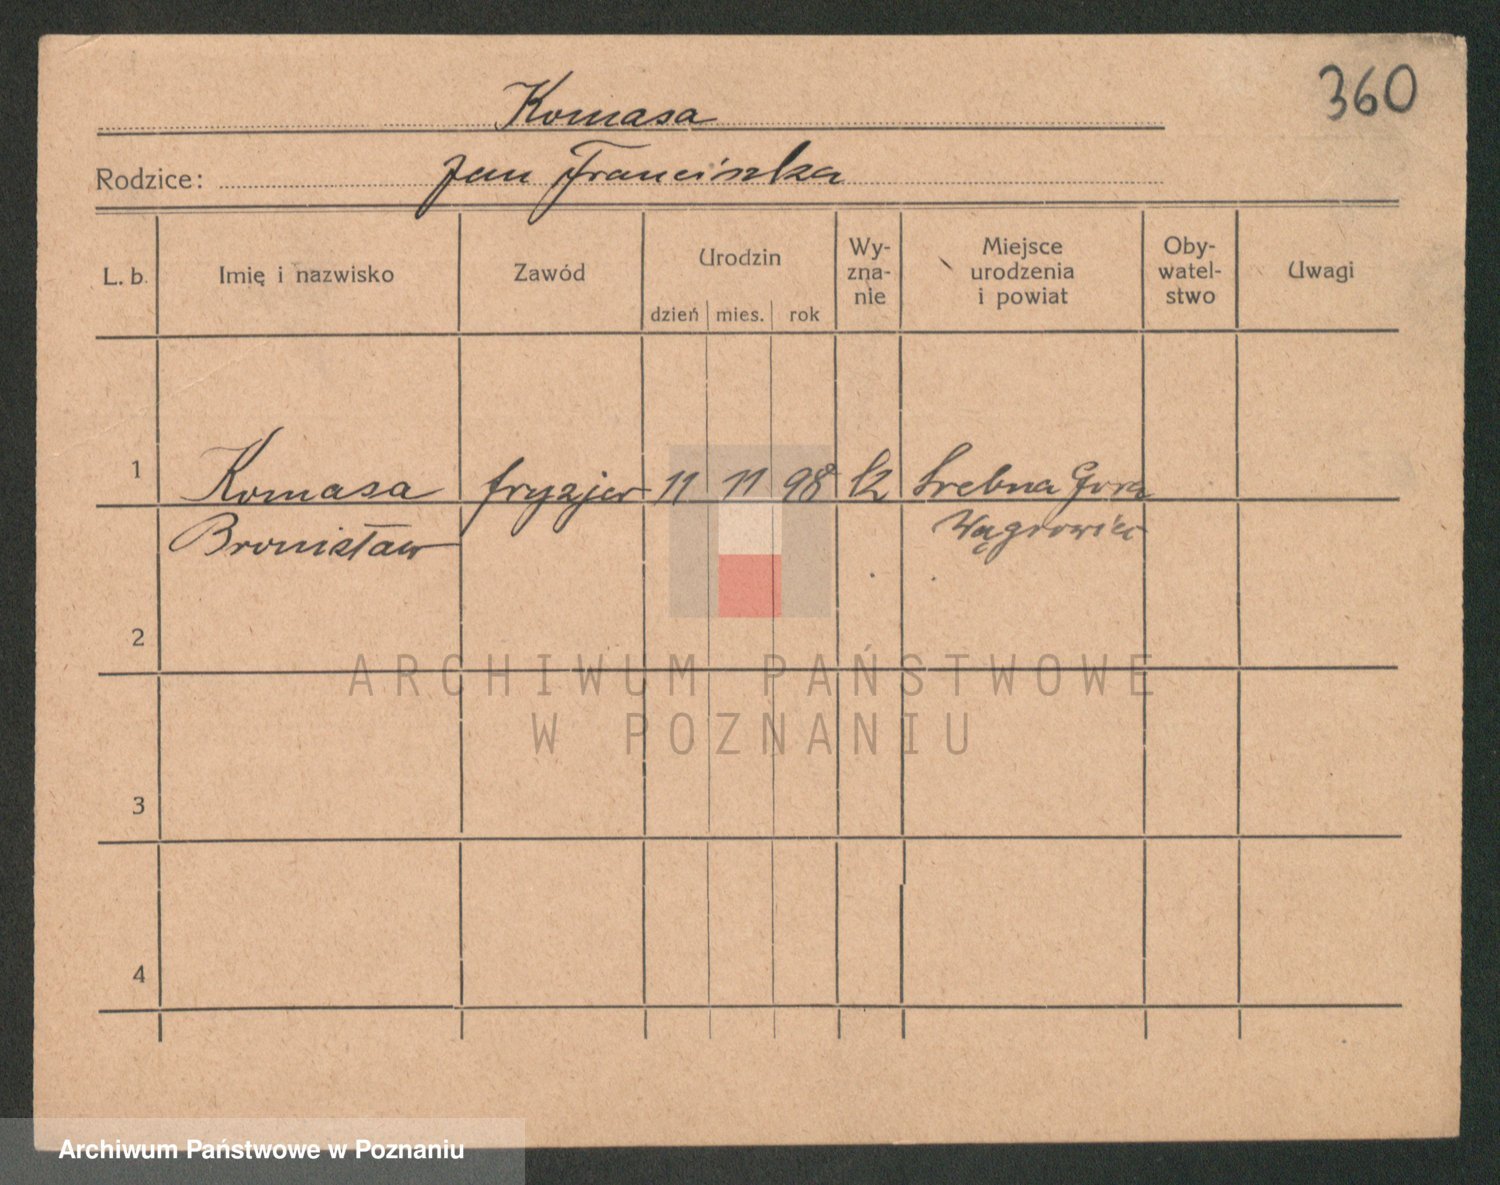 360
Komasa
Rodzice: Jan Franciszka
L. b. Imię i nazwisko Zawód Urodzin dzień mies. rok Wy-zna-nie Miejsce urodzenia i powiat Oby-watel-stwo Uwagi
1 Komasa fryzjer 11 11 98 k Srebna Gora
Bronisław Wągrowiec
2
ARCHIWUM PAŃSTWOWE
W POZNANIU
3
4
Archiwum Państwowe w Poznaniu